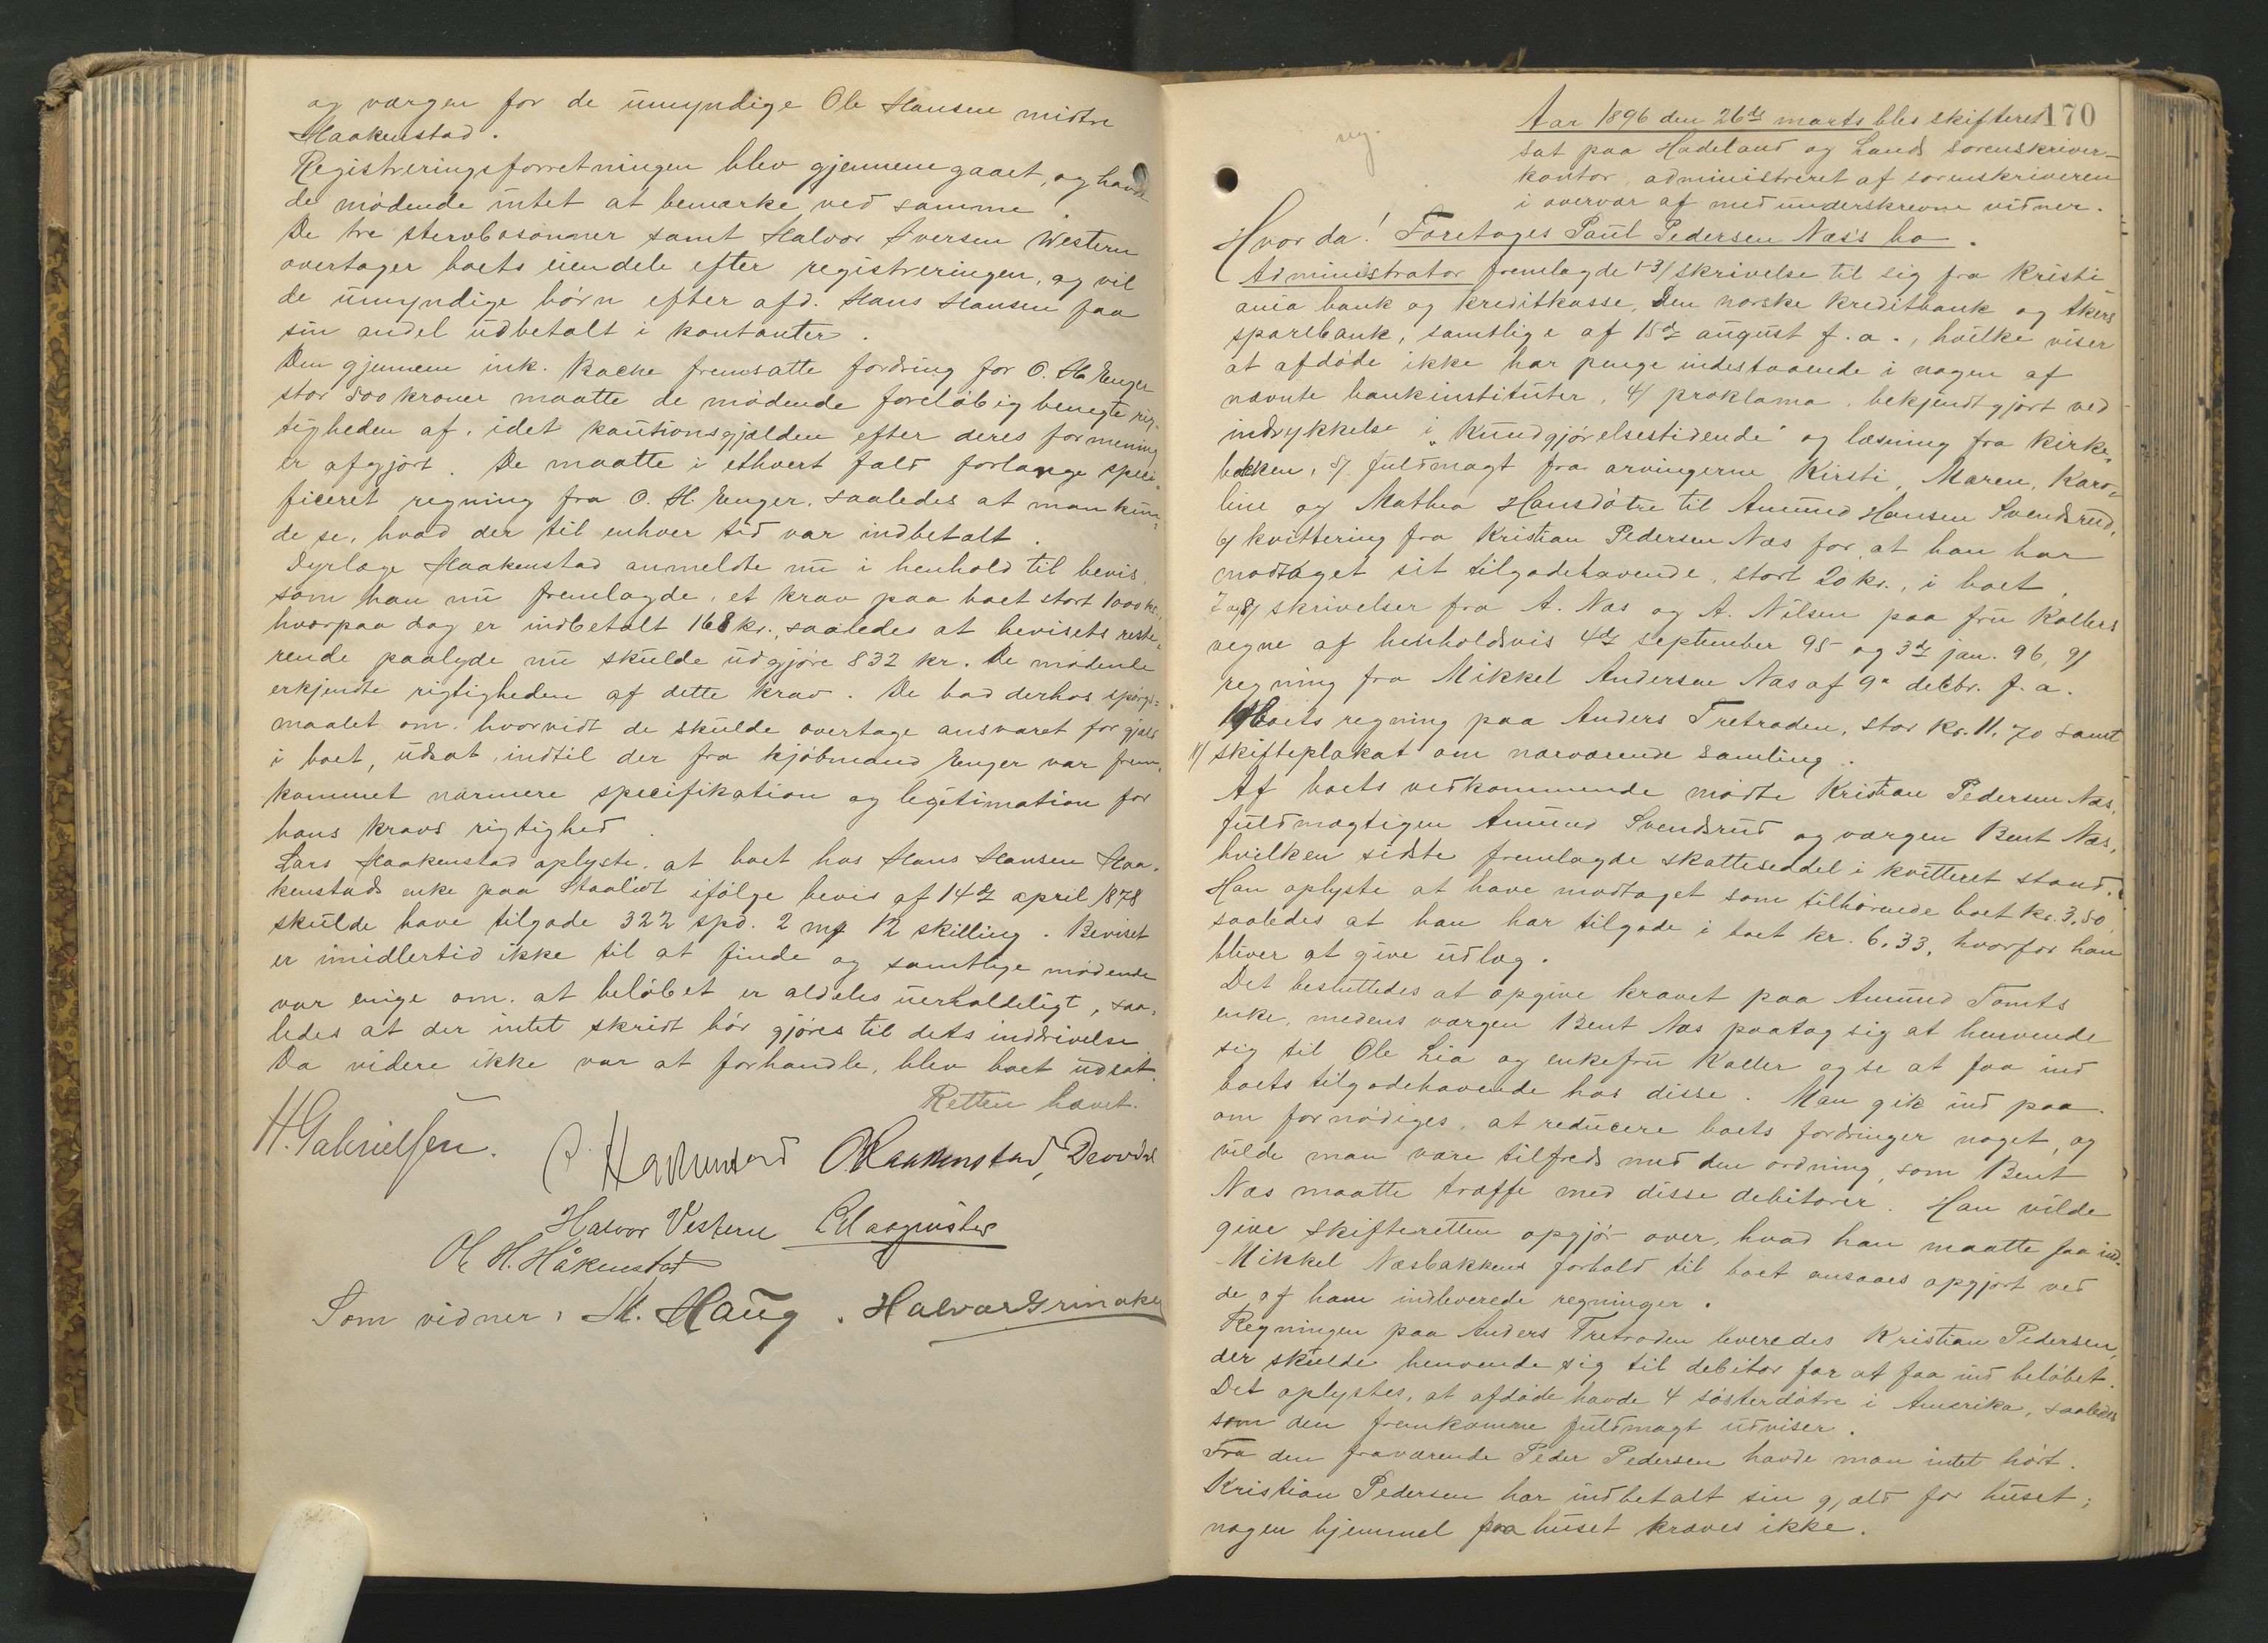 og værgen for de umyndige Ole Hansen midtre
Haakenstad.
Registreringsforretningen blev gjennemgaaet, og havde
de mødende intet at bemærke ved samme.
De tre stervbosønner samt Halvor Iversen Western
overtager boets eiendele efter registreringen, og vil
de umyndige børn efter afd. Hans Hansen faa
sin andel udbetalt i kontanter.
Den gjennem ink. Backe fremsatte fordring for O. H. Enger
stor 800 kroner maatte de mødende foreløbig benegte rig-
tigheden af, idet kautionsgjælden efter deres formening
er afgjort. De maatte i ethvert fald forlange speci-
ficeret regning fra O. H. Enger, saaledes at man kun-
de se, hvad der til enhver tid var indbetalt.
Dyrlæge Haakenstad anmeldte nu i henhold til bevis,
som han nu fremlagde, et krav paa boet stort 1000 kr.,
hvorpaa dog er indbetalt 168 kr., saaledes at bevisets reste-
rende paalyde nu skulde udgjøre 832 kr. De mødende
erkjendte rigtigheden af dette krav. De bad derhos spørgs-
maalet om, hvorvidt de skulde overtage ansvaret for gjæld
i boet, udsat, indtil der fra kjøbmand Enger var frem-
kommet nærmere specifikation og legitimation for
hans kravs rigtighed.
Lars Haakenstad oplyste, at boet hos Hans Hansen Haa-
kenstads enke paa Staalidt ifølge bevis af 14de april 1878
skulde have tilgode 322 spd. 2 mf 12 skilling. Beviset
er imidlertid ikke til at finde og samtlige mødende
var enige om, at beløbet er aldeles uerholdeligt, saa-
ledes at der intet skridt bør gjøres til dets inddrivelse.
Da videre ikke var at forhandle, blev boet udsat.
Retten hævet.
H. Gabrielsen.
Haakenstad OHaakenstad,
Halvor Vestern
Ole H. Håkenstad
Som vidner: M. Haug. Halvor Grinaker
170
reg.
Aar 1896 den 26de marts blev skifteret
sat paa Hadeland og Lands sorenskriver-
kontor, administreret af sorenskriveren
i overvær af medunderskrevne vidner.
Hvor da! Foretoges Paul Pedersen Næs's bo.
Administrator fremlagde 1-3/ skrivelse til sig fra Kristi-
ania bank og kreditkasse, Den norske kreditbank og Akers
sparebank, samtlige af 15de august f. a., hvilke viser
at afdøde ikke har penge indestaaende i nogen af
nævnte bankinstituter, 4/ proklama, bekjendtgjort ved
indrykkelse i "Kundgjørelsestidende" og læsning fra kirke-
bakken, 5/ fuldmagt fra arvingerne Kirsti, Maren, Karo-
line og Mathea Hansdøtre til Amund Hansen Svendsrud,
6/ kvittering fra Kristian Pedersen Næs for, at han har
modtaget sit tilgodehavende, stort 20 kr., i boet,
7 og 8/ skrivelser fra A. Næs og A. Nilsen paa fru Kollers
vegne af henholdsvis 4de september 95 og 3de jan. 96, 9/
regning fra Mikkel Andersen Næs af 9de decbr. f. a.
10/ boets regning paa Anders Tretraden, stor kr. 11,70 samt
11/ skifteplakat om nærværende samling.
Af boets vedkommende mødte Kristian Pedersen Næs,
fuldmægtigen Amund Svendsrud og værgen Bent Næs,
hvilken sidste fremlagde skatteseddel i kvitteret stand.
Han oplyste at have modtaget som tilhørende boet kr. 3,50
saaledes at han har tilgode i boet kr. 6,33, hvorfor han
bliver at give udlæg.
Det besluttedes at opgive kravet paa Amund Tomts
enke, medens værgen Bent Næs paatog sig at henvende
sig til Ole Lia og enkefru Koller og se at faa ind
boets tilgodehavende hos disse. Man gik ind paa
om fornødiges, at reducere boets fordringer noget, og
vilde man være tilfreds med den ordning, som Bent
Næs maatte træffe med disse debitorer. Han vilde
give skifteretten opgjør over, hvad han maatte faa ind.
Mikkel Næsbakkens forhold til boet ansaaes opgjort ved
de af ham indleverede regninger.
Regningen paa Anders Tretraden leveredes Kristian Pedersen,
der skulde henvende sig til debitor for at faa ind beløbet.
Det oplystes, at afdøde havde 4 søsterdøtre i Amerika, saaledes
som den fremkomne fuldmagt udviser.
Fra den fraværende Peder Pedersen havde man intet hørt.
Kristian Pedersen har indbetalt sin gjæld for huset;
nogen hjemmel paa huset kræves ikke.